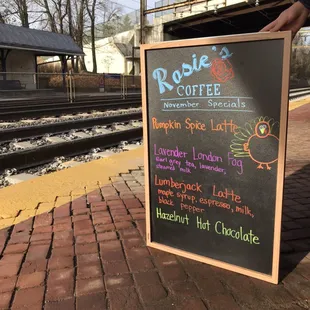 Rosie's
COFFEE
November Specials
Pumpkin Spice Latte
Lavender London Fog
earl grey tea, lavender,
steamed milk
Lumberjack Latte
maple syrup, espresso, milk,
black pepper
Hazelnut Hot Chocolate